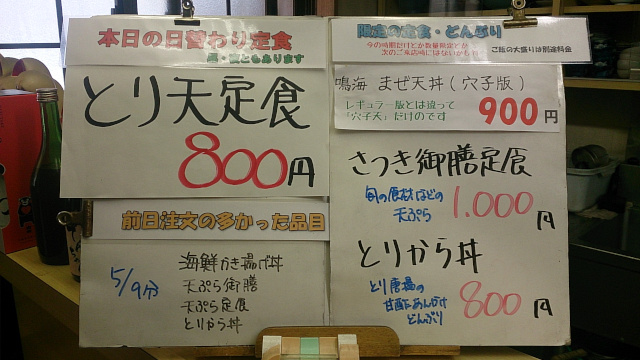 本日の日替わり定食
昼・夜ともあります
とり天定食
800円
前日注文の多かった品目
5/9分
海鮮かき揚げ丼
天ぷら御膳
天ぷら定食
とりから丼
限定の定食・どんぶり
今の時期だけとか数量限定とか
次のご来店時にはないかも何べ
ご飯の大盛りは別途料金
鳴海 まぜ天丼(穴子版)
レギュラー版とは違って
「穴子天」だけのです
900円
さつき御膳定食
旬の食材などの
天ぷら
1.000円
とりから丼
とり唐揚の
甘酢あんかけ
どんぶり
800円